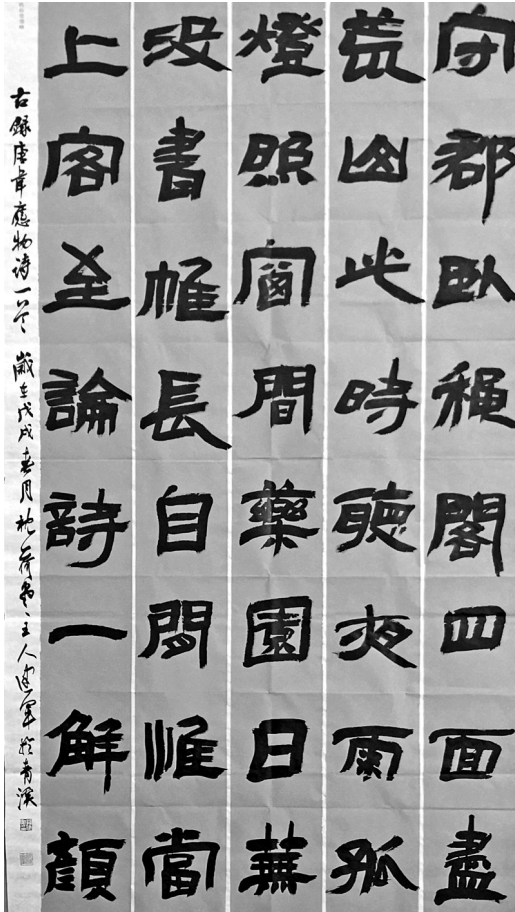 守郡臥穐閣四面盡
荒山此時聽夜雨孤
燈照窗間藥園日蕪
沒書帷長自閒惟當
上客至論詩一解顏
右錄唐韋應物詩一首 歲在戊戌春月 主人建軍於青溪